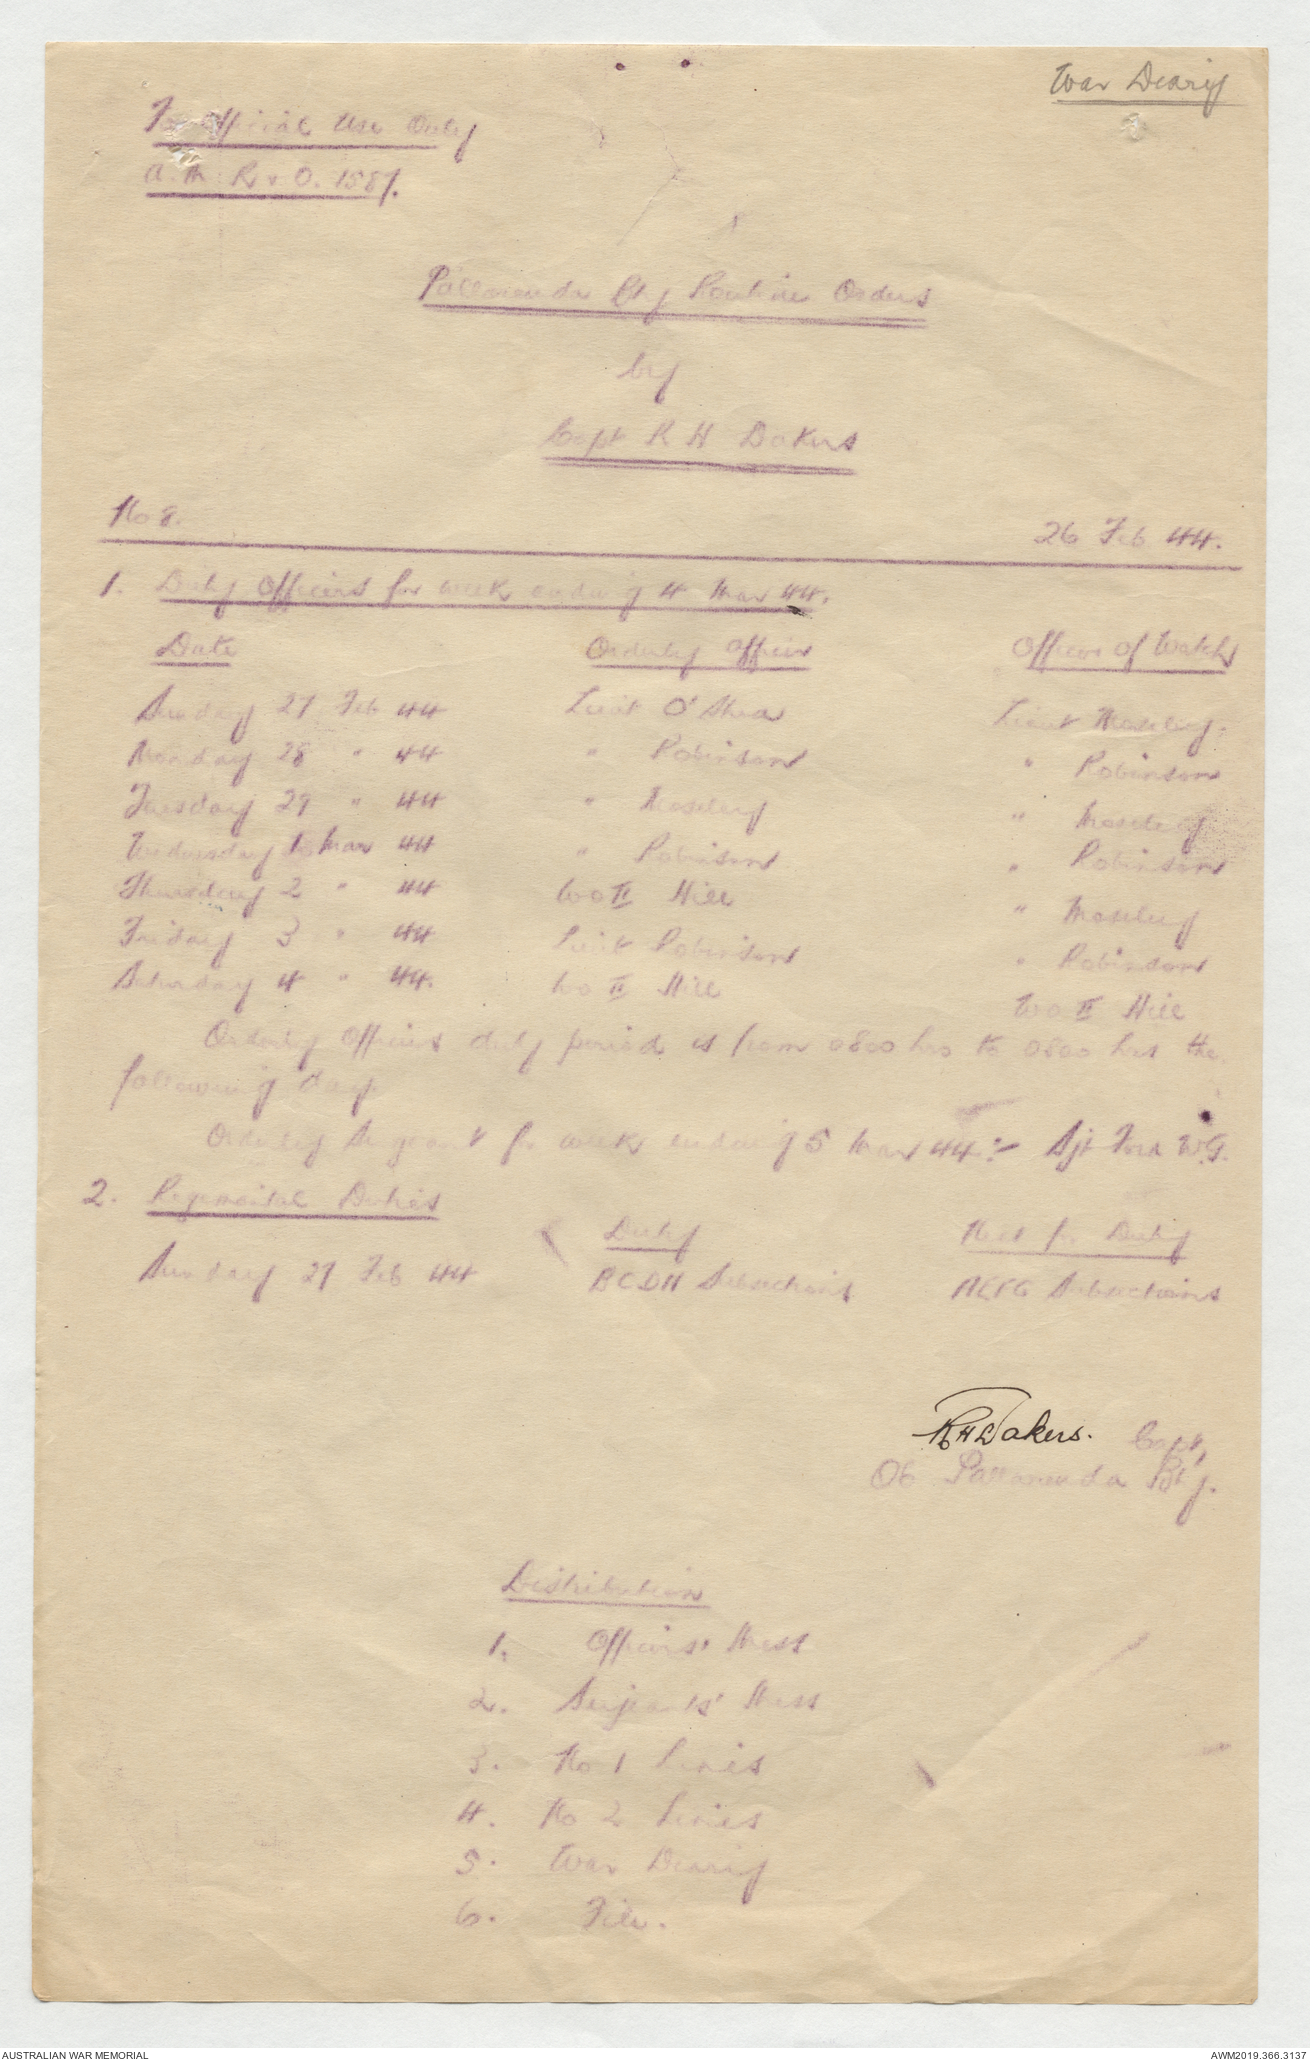 War Diary
For Official Use Only
A.M.R. & O. 1587.
Pallarenda Bty Routine Orders
by
Capt R H Dakers
No 8.
26 Feb 44.
1. Duty Officers for week ending 4 Mar 44.
Date Orderly Officer Officer of Watch
Sunday 27 Feb 44 Lieut O'Shea Lieut Moseley.
Monday 28 " 44 " Robinson " Robinson
Tuesday 29 " 44 " Moseley " Moseley
Wednesday 1 Mar 44 " Robinson " Robinson
Thursday 2 " 44 WO II Hill " Moseley
Friday 3 " 44 Lieut Robinson " Robinson
Saturday 4 " 44. WO II Hill WO II Hill
Orderly Officers duty period is from 0800 hrs to 0800 hrs the
following day.
Orderly Sergeant for week ending 5 Mar 44 :- Sjt Ford W.G.
2. Regimental Duties
Duty Next for Duty
Sunday 27 Feb 44 BCDH Subsections AEFG Subsections
RHDakers. Capt,
OC Pallarenda Bty.
Distribution
1. Officers' Mess
2. Serjeants' Mess
3. No 1 Lines
4. No 2 Lines
5. War Diary
6. File.
AUSTRALIAN WAR MEMORIAL
AWM2019.366.3137